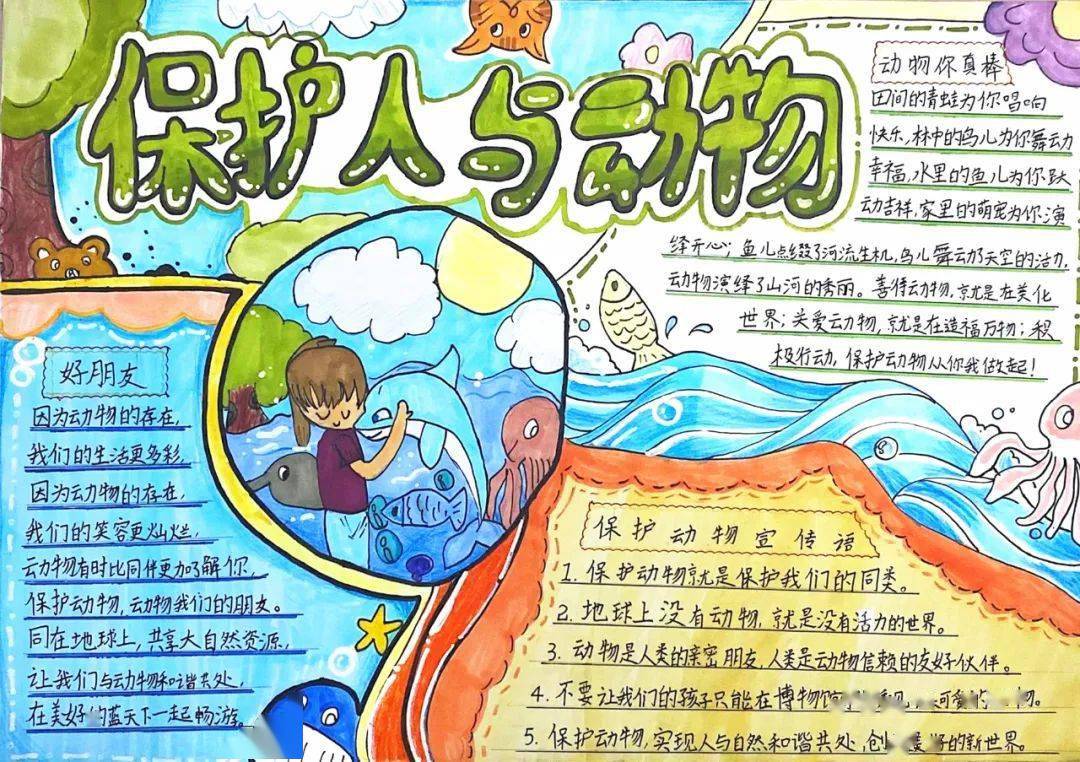 保护人与动物
动物你真棒
田间的青蛙为你唱响
快乐,林中的鸟儿为你舞动
幸福,水里的鱼儿为你跃
动吉祥,家里的萌宠为你演
绎开心;鱼儿点缀了河流生机,鸟儿舞动了天空的活力,
动物演绎了山河的秀丽。善待动物,就是在美化
世界;关爱动物,就是在造福万物;积
极行动,保护动物从你我做起!
好朋友
因为动物的存在,
我们的生活更多彩,
因为动物的存在,
我们的笑容更灿烂,
动物有时比同伴更加了解你,
保护动物,动物我们的朋友。
同在地球上,共享大自然资源,
让我们与动物和谐共处,
在美好的蓝天下一起畅游。
保护动物宣传语
1. 保护动物就是保护我们的同类。
2. 地球上没有动物,就是没有活力的世界。
3. 动物是人类的亲密朋友,人类是动物信赖的友好伙伴。
4. 不要让我们的孩子只能在博物馆 见 可爱的 物。
5. 保护动物,实现人与自然和谐共处,创 美好的新世界。